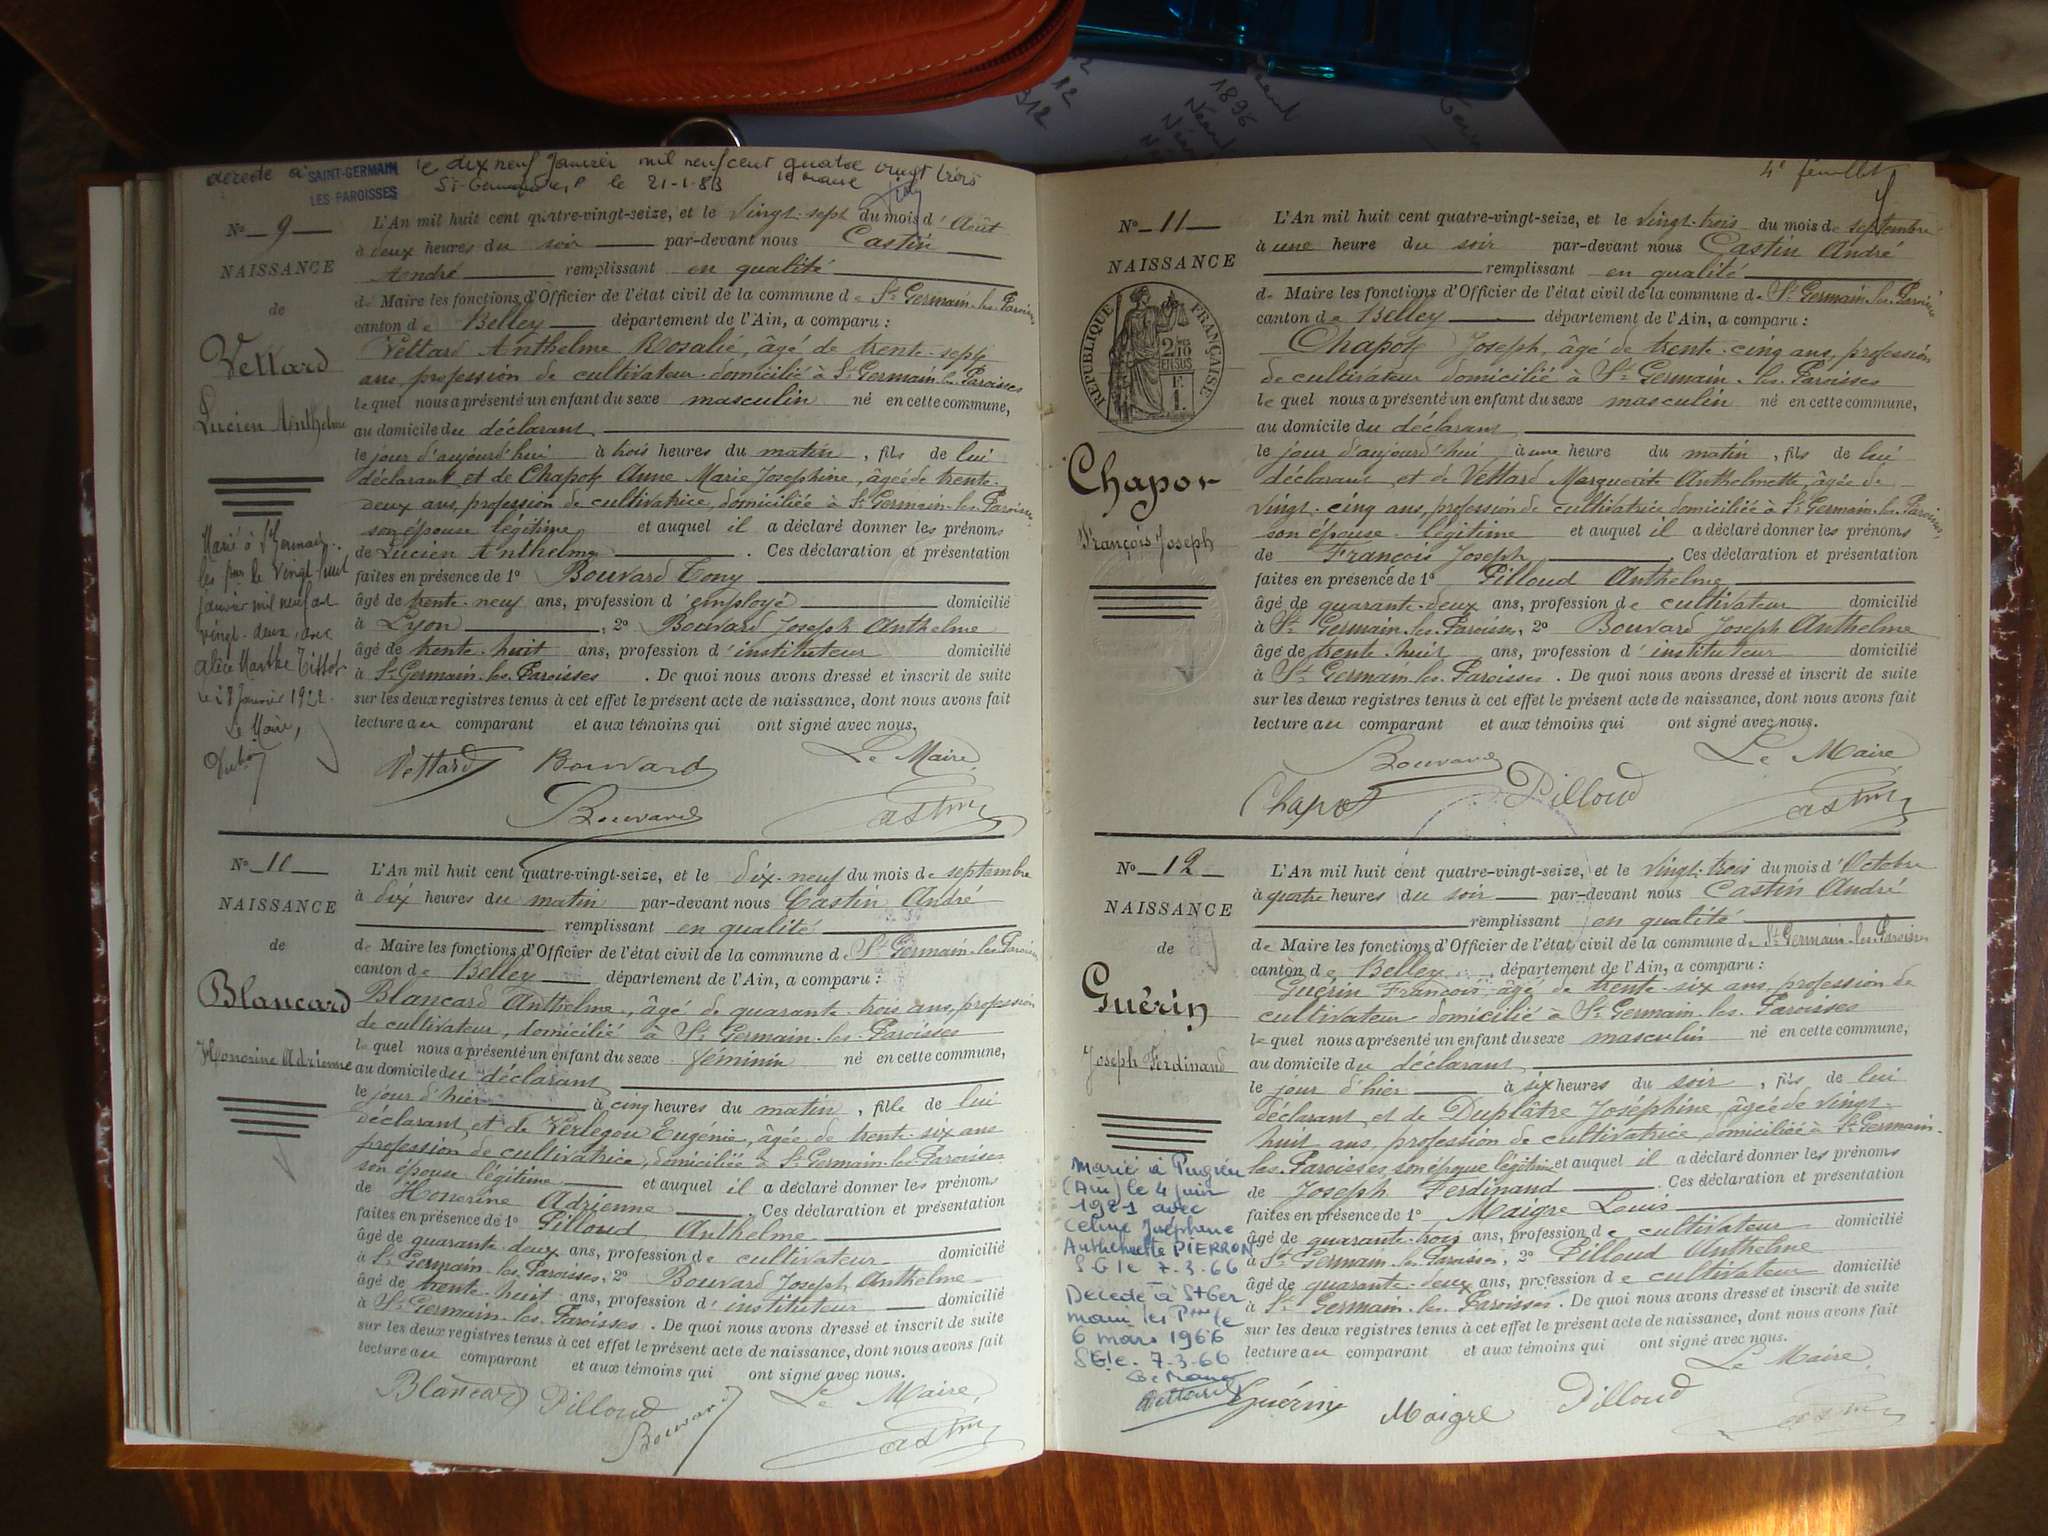 décédé à SAINT-GERMAIN LES PAROISSES le dix neuf Janvier mil neuf cent quatre vingt trois
St-Germain le 21-1-83 le Maire
No 9
NAISSANCE
de
Vettard
Lucien Anthelme
Marié à St Germain
les Par le vingt huit
janvier mil neuf cent
vingt-deux, avec
Alice Marthe Tissot
le 28 Janvier 1922.
Le Maire,
L'An mil huit cent quatre-vingt-seize, et le vingt-sept du mois d'Août
à deux heures du soir par-devant nous Castin
André remplissant en qualité
de Maire les fonctions d'Officier de l'état civil de la commune de St Germain-les-Paroisses
canton de Belley département de l'Ain, a comparu :
Vettard Anthelme Rosalie, âgé de trente-sept
ans, profession de cultivateur domicilié à St Germain-les-Paroisses
lequel nous a présenté un enfant du sexe masculin né en cette commune,
au domicile du déclarant
le jour d'aujourd'hui à trois heures du matin, fils de lui
déclarant et de Chapot Anne Marie Josephine, âgée de trente-
deux ans, profession de cultivatrice, domiciliée à St Germain-les-Paroisses,
son épouse légitime et auquel il a déclaré donner les prénoms
de Lucien Anthelme . Ces déclaration et présentation
faites en présence de 1o Bouvard Tony
âgé de trente-neuf ans, profession d'employé domicilié
à Lyon , 2o Bouvard Joseph Anthelme
âgé de trente-huit ans, profession d'instituteur domicilié
à St Germain-les-Paroisses . De quoi nous avons dressé et inscrit de suite
sur les deux registres tenus à cet effet le présent acte de naissance, dont nous avons fait
lecture au comparant et aux témoins qui ont signé avec nous.
Vettard Bouvard Le Maire
Bouvard Castin
No 10
NAISSANCE
de
Blancard
Honorine Adrienne
L'An mil huit cent quatre-vingt-seize, et le dix-neuf du mois de septembre
à dix heures du matin par-devant nous Castin André
remplissant en qualité
de Maire les fonctions d'Officier de l'état civil de la commune de St Germain-les-Paroisses
canton de Belley département de l'Ain, a comparu :
Blancard Anthelme, âgé de quarante-trois ans, profession
de cultivateur, domicilié à St Germain-les-Paroisses
lequel nous a présenté un enfant du sexe féminin né en cette commune,
au domicile du déclarant
le jour d'hier à cinq heures du matin, fille de lui
déclarant et de Verlegou Eugénie, âgée de trente-six ans
profession de cultivatrice, domiciliée à St Germain-les-Paroisses
son épouse légitime et auquel il a déclaré donner les prénoms
de Honorine Adrienne . Ces déclaration et présentation
faites en présence de 1o Pilloud Anthelme
âgé de quarante-deux ans, profession de cultivateur domicilié
à St Germain-les-Paroisses, 2o Bouvard Joseph Anthelme
âgé de trente-huit ans, profession d'instituteur domicilié
à St Germain-les-Paroisses . De quoi nous avons dressé et inscrit de suite
sur les deux registres tenus à cet effet le présent acte de naissance, dont nous avons fait
lecture au comparant et aux témoins qui ont signé avec nous.
Blancard Pilloud Bouvard Le Maire,
Castin
4e feuillet
No 11
NAISSANCE
RÉPUBLIQUE FRANÇAISE
2/10 EN SUS
Chapot
François Joseph
L'An mil huit cent quatre-vingt-seize, et le vingt-trois du mois de septembre
à une heure du soir par-devant nous Castin André
remplissant en qualité
de Maire les fonctions d'Officier de l'état civil de la commune de St Germain-les-Paroisses
canton de Belley département de l'Ain, a comparu :
Chapot Joseph, âgé de trente-cinq ans, profession
de cultivateur domicilié à St Germain-les-Paroisses
lequel nous a présenté un enfant du sexe masculin né en cette commune,
au domicile du déclarant
le jour d'aujourd'hui à une heure du matin, fils de lui
déclarant et de Vettard Marguerite Anthelmette, âgée de
vingt-cinq ans, profession de cultivatrice domiciliée à St Germain-les-Paroisses,
son épouse légitime et auquel il a déclaré donner les prénoms
de François Joseph . Ces déclaration et présentation
faites en présence de 1o Pilloud Anthelme
âgé de quarante-deux ans, profession de cultivateur domicilié
à St Germain-les-Paroisses, 2o Bouvard Joseph Anthelme
âgé de trente-huit ans, profession d'instituteur domicilié
à St Germain-les-Paroisses . De quoi nous avons dressé et inscrit de suite
sur les deux registres tenus à cet effet le présent acte de naissance, dont nous avons fait
lecture au comparant et aux témoins qui ont signé avec nous.
Bouvard Le Maire
Chapot Pilloud Castin
No 12
NAISSANCE
de
Guérin
Joseph Ferdinand
Marié à Pugieu
(Ain) le 4 juin
1921 avec
Céline Josephine
Anthelmette PIERRON
SGle 7-3-66
Décédé à St Ger
main les Pses le
6 mars 1966
SGle 7-3-66
Le Maire
Vettard
L'An mil huit cent quatre-vingt-seize, et le vingt-trois du mois d'Octobre
à quatre heures du soir par-devant nous Castin André
remplissant en qualité
de Maire les fonctions d'Officier de l'état civil de la commune de St Germain-les-Paroisses
canton de Belley département de l'Ain, a comparu :
Guérin François, âgé de trente-six ans, profession de
cultivateur domicilié à St Germain-les-Paroisses
lequel nous a présenté un enfant du sexe masculin né en cette commune,
au domicile du déclarant
le jour d'hier à six heures du soir, fils de lui
déclarant et de Duplâtre Joséphine, âgée de vingt-
huit ans, profession de cultivatrice domiciliée à St Germain-
les-Paroisses, son épouse légitime et auquel il a déclaré donner les prénoms
de Joseph Ferdinand . Ces déclaration et présentation
faites en présence de 1o Maigre Louis
âgé de quarante-trois ans, profession de cultivateur domicilié
à St Germain-les-Paroisses, 2o Pilloud Anthelme
âgé de quarante-deux ans, profession de cultivateur domicilié
à St Germain-les-Paroisses . De quoi nous avons dressé et inscrit de suite
sur les deux registres tenus à cet effet le présent acte de naissance, dont nous avons fait
lecture au comparant et aux témoins qui ont signé avec nous.
Le Maire
Guérin Maigre Pilloud Castin